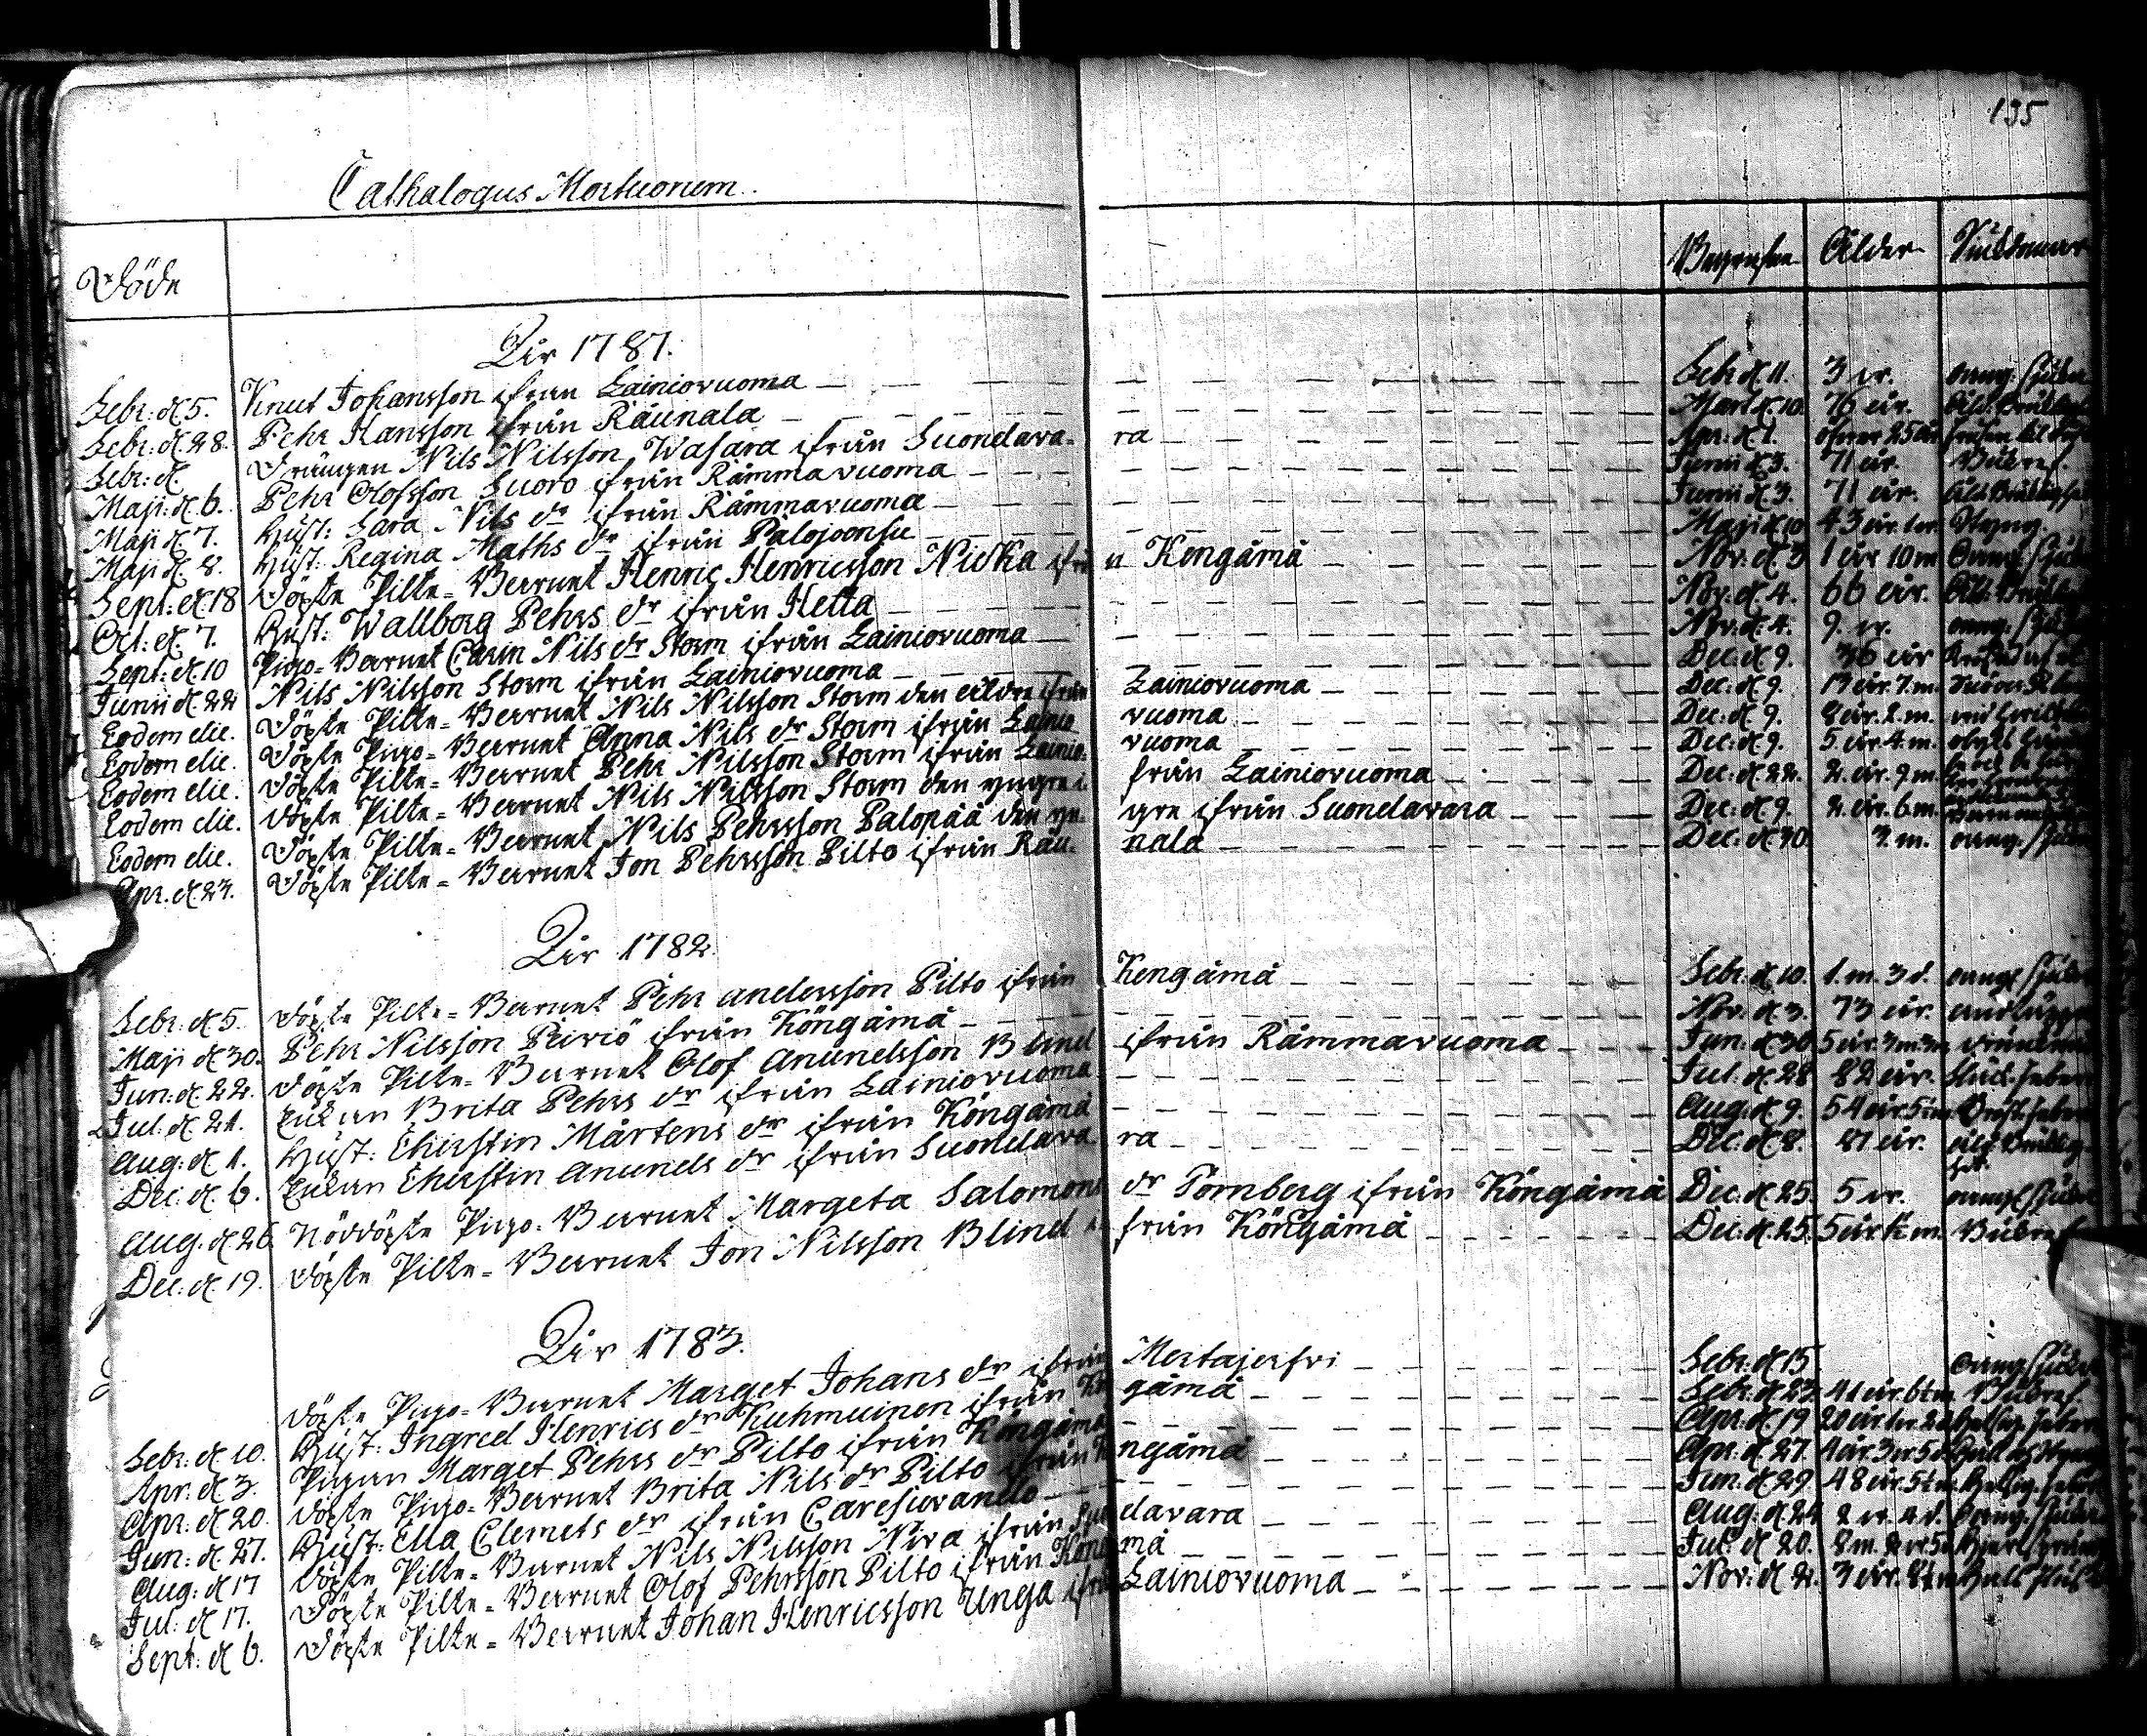 135
Cathalogus Mortuorum.
Döde Begrafne Ålder Siukdomar
Åhr 1781.
Febr: d. 5. Knut Johansson ifrån Lainiovuoma Febr. d. 11. 3 v. oang:
Febr: d. 28. Pehr Hansson ifrån Raunala Mart. d. 10 76 år.
Febr: d. Drängen Nils Nilsson Wasara ifrån Suondavara Apr: d. 1. öfver 25 år
Maji: d. 6. Pehr Olofsson Suoro ifrån Rämmavuoma Junii d. 3. 71 år. Bråkf.
Maji d. 7. Hust: Sara Nils dr ifrån Rämmavuoma Junii d. 3. 71 år.
Maji d. 8. Hust: Regina Maths dr ifrån Palojoonsu Maji d. 10 43 år Styng.
Sept: d. 18 Döpte Pilte-Barnet Henric Henricsson Nicka ifrån Kengämä Nov: d. 3 1 år 10 m
Oct: d. 7. Hust: Wallborg Pehrs dr ifrån Hetta Nov. d. 4. 66 år.
Sept: d. 10 Pigo-Barnet Carin Nils dr Storm ifrån Lainiovuoma Nov: d. 4. 9. v. oang:
Junii d. 22 Nils Nilsson Storm ifrån Lainiovuoma Dec: d. 9. 36 år
Eodem die. Döpte Pilte-Barnet Nils Nilsson Storm den äldre ifrån Lainiovuoma Dec: d. 9. 7. m.
Eodem die. Döpte Pigo-Barnet Anna Nils dr Storm ifrån Lainiovuoma Dec: d. 9. 8 år. 2. m.
Eodem die. Döpte Pilte-Barnet Pehr Nilsson Storm ifrån Lainiovuoma Dec: d. 9. 5. år 4. m.
Eodem die. Döpte Pilte-Barnet Nils Nilsson Storm den yngre ifrån Lainiovuoma Dec: d. 22. 2. år. 9 m.
Eodem die. Döpte Pilte-Barnet Nils Pehrsson Palopää den yngre ifrån Suondavara Dec: d. 9. 2. år. 6 m.
Apr. d. 23. Döpte Pilte-Barnet Jon Pehrsson Pilto ifrån Raunala Dec: d. 30 3. m. oang.
Åhr 1782.
Febr: d. 5. Döpte Pilte-Barnet Pehr Andersson Pilto ifrån Kengämä Febr. d. 10. 1. m. 3 d.
Maji d. 30. Pehr Nilsson Peiviö ifrån Köngämä Nov. d. 3. 73 år.
Jun: d. 22. Döpte Pilte-Barnet Olof Anundsson Blind ifrån Rämmavuoma Jun: d. 30 5 år.
Jul. d. 21. Enkan Brita Pehrs dr ifrån Lainiovuoma Jul: d. 28 82 år.
Aug: d. 1. Hust: Cherstin Mårtens dr ifrån Köngämä Aug: d. 9. 54 år
Dec: d. 6. Enkan Cherstin Anunds dr ifrån Suondavara Dec: d. 8. 81 år.
Aug. d. 26. Nöddöpte Pigo-Barnet Margeta Salomons dr Törnberg ifrån Köngämä Dec: d. 25. 5 v.
Dec: d. 19. Döpte Pilte-Barnet Jon Nilsson Blind ifrån Köngämä Dec: d. 25. 5 år
Åhr 1783.
Döpte Pigo-Barnet Marget Johans dr ifrån Mertajerfvi Febr: d. 15
Febr: d. 10. Hust: Ingred Henrics dr Kuhmuinen ifrån Köngämä Febr: d. 23. 41 år
Apr: d. 3. Pigan Marget Pehrs dr Pilto ifrån Köngämä Apr: d. 19 20 år
Apr: d. 20. Döpte Pigo-Barnet Brita Nils dr Pilto ifrån Köngämä Apr: d. 27.
Jun: d. 27. Hust: Ella Clemets dr ifrån Caresuvando Jun: d. 29. 48 år
Aug: d. 17 Döpte Pilte-Barnet Nils Nilsson Niva ifrån Suondavara Aug: d. 24
Jul: d. 17. Döpte Pilte-Barnet Olof Pehrsson Pilto ifrån Köngämä Jul: d. 20.
Sept: d. 6. Döpte Pilte-Barnet Johan Henricsson Unga ifrån Lainiovuoma Nov: d. 2. 3 år.